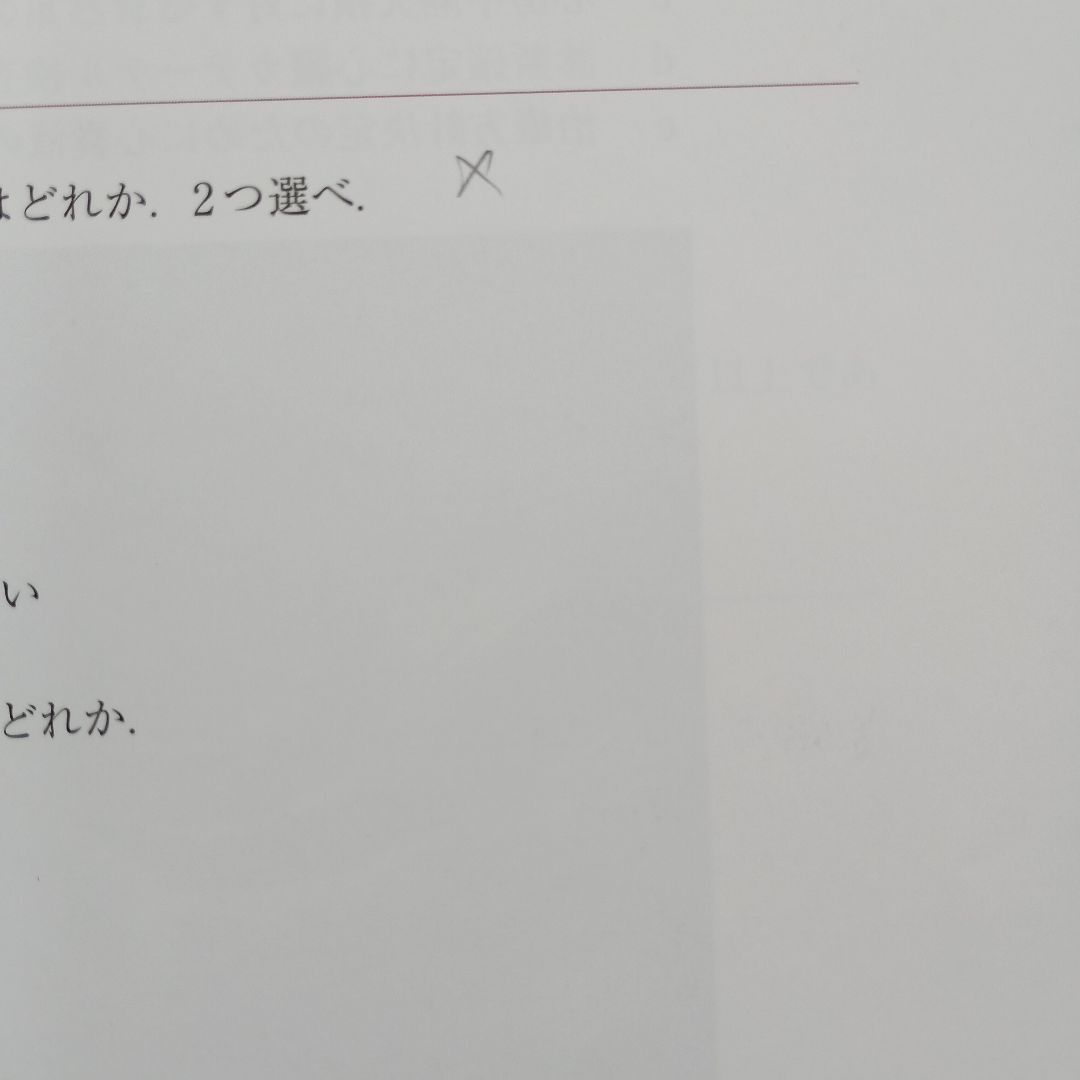 はどれか．2つ選べ．
い
どれか．